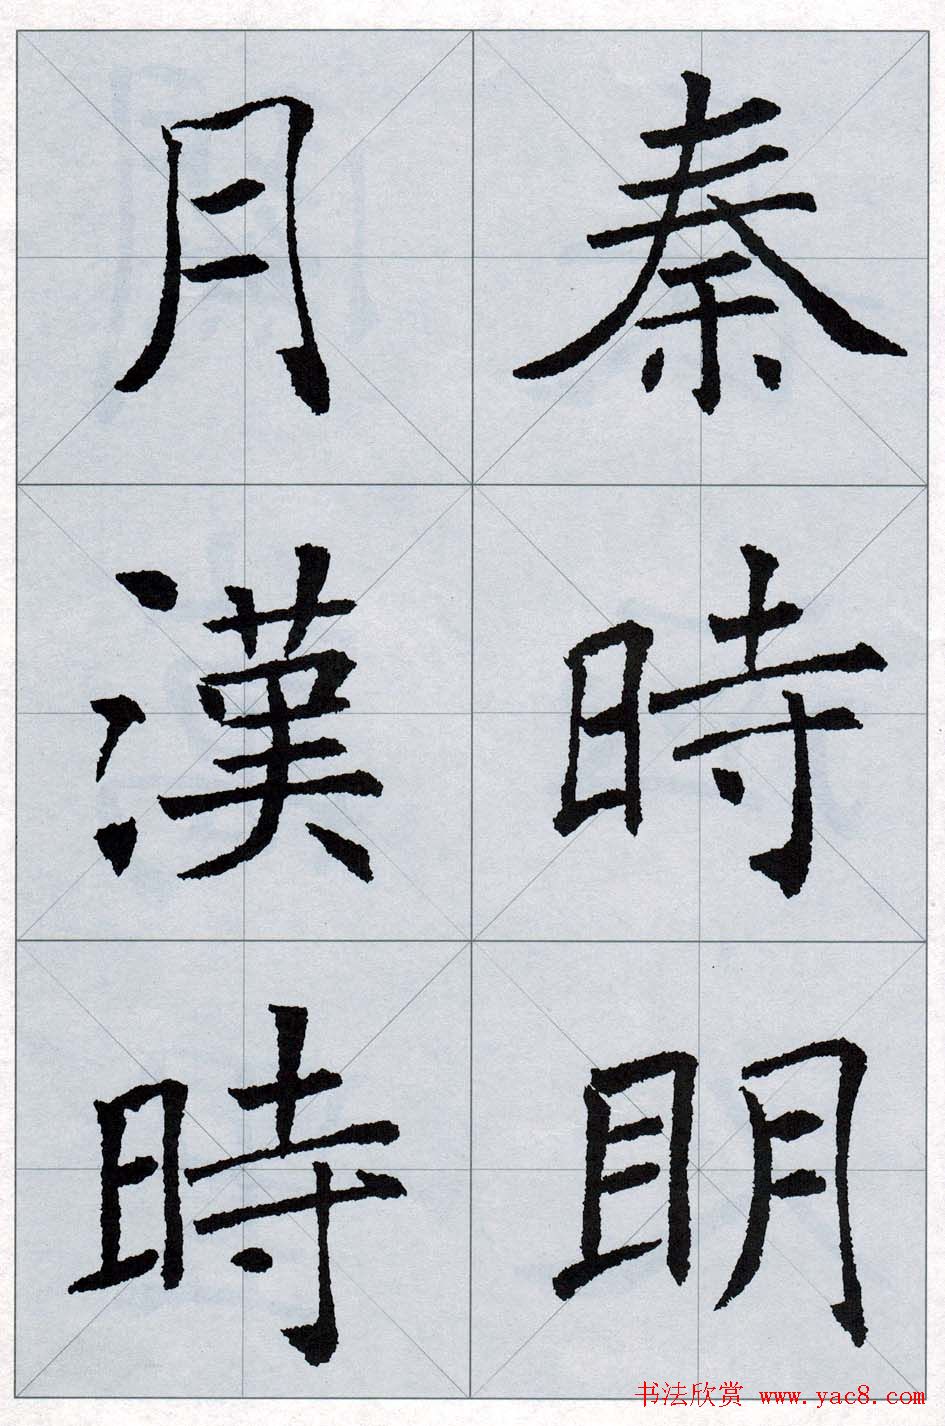 秦時眀
月漢時
书法欣赏 www.yac8.com